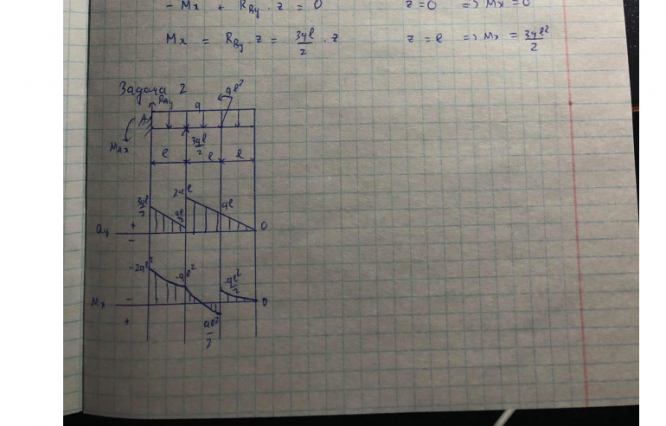 - Mx + RBy · z = 0 z=0 => Mx = 0
Mx = RBy · z = 3ql/2 · z z = l => Mx = 3ql²/2
Задача 2
RAy q ql²
A
MAx 3ql/2
l l l
3ql/2 ql/2 2ql ql 0
Qy + -
-2ql² -ql² ql²/2 0
Mx - +
ql²/2